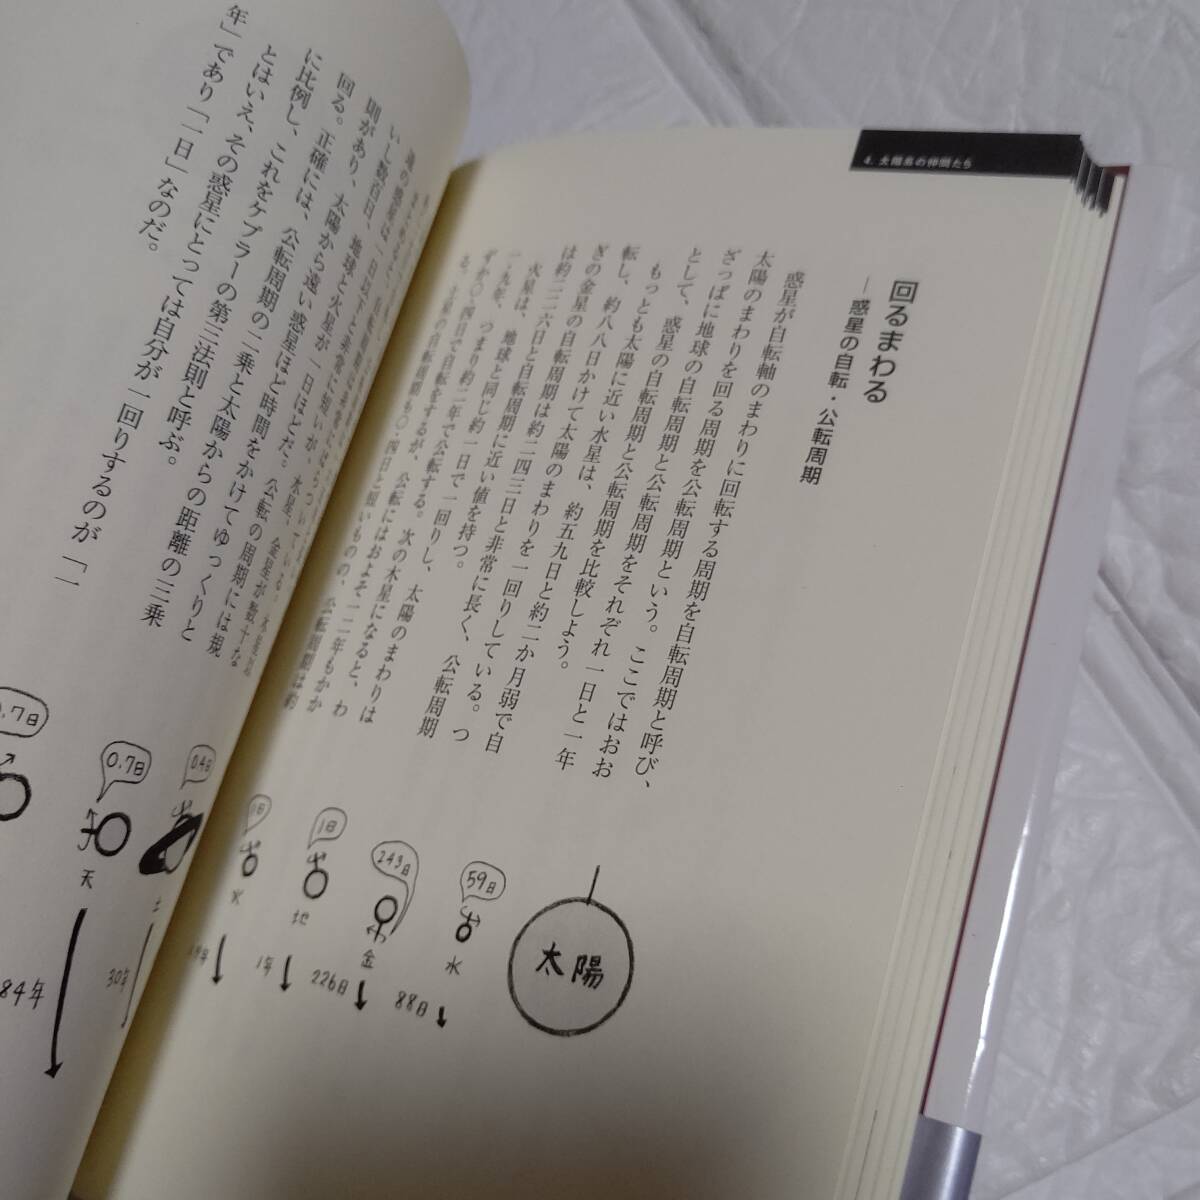 4. 太陽系の仲間たち
回るまわる
―惑星の自転・公転周期
惑星が自転軸のまわりに回転する周期を自転周期と呼び、
太陽のまわりを回る周期を公転周期という。ここではおお
ざっぱに地球の自転周期と公転周期をそれぞれ一日と一年
として、惑星の自転周期と公転周期を比較しよう。
もっとも太陽に近い水星は、約五九日と約二か月弱で自
転し、約八八日かけて太陽のまわりを一回りしている。つ
ぎの金星の自転周期は約二四三日と非常に長く、公転周期
は約二二六日と自転周期に近い値を持つ。
火星は、地球と同じ約一日で一回りし、太陽のまわりは
一・九年、つまり約二年で公転する。次の木星になると、わ
ずか〇・四日で自転をするが、公転にはおよそ一二年もかか
る。土星の自転周期も〇・四日と短いものの、公転周期は約
いし数百日、地球と火星が一日ほどだ。水星、金星が数十な
則があり、太陽から遠い惑星ほど時間をかけてゆっくりと
回る。正確には、公転周期の二乗と太陽からの距離の三乗
に比例し、これをケプラーの第三法則と呼ぶ。
とはいえ、その惑星にとっては自分が一回りするのが「一
年」であり「一日」なのだ。
太陽
59日
水
88日
243日
金
226日
1日
地
1年
1日
火
0.4日
土
30年
0.7日
天
84年
0.7日